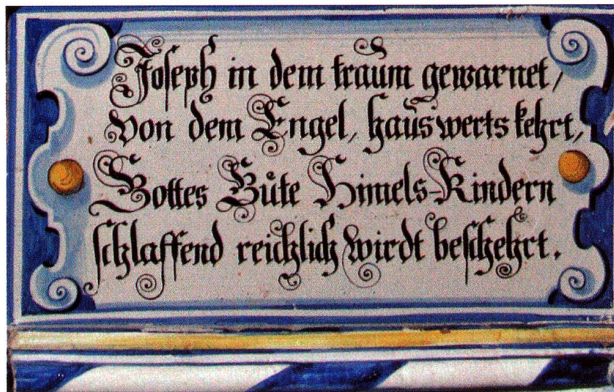 Joseph in dem traum gewarnet/
Von dem Engel, haüs werts kehrt,
Gottes Güte Himels-Kindern
schlaffend reichlich wirdt beschehrt.